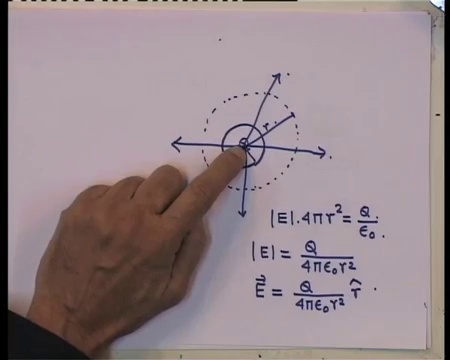 r
|E|. 4πr² = Q/ε₀.
|E| = Q/4πε₀r²
E⃗ = Q/4πε₀r² r̂ .